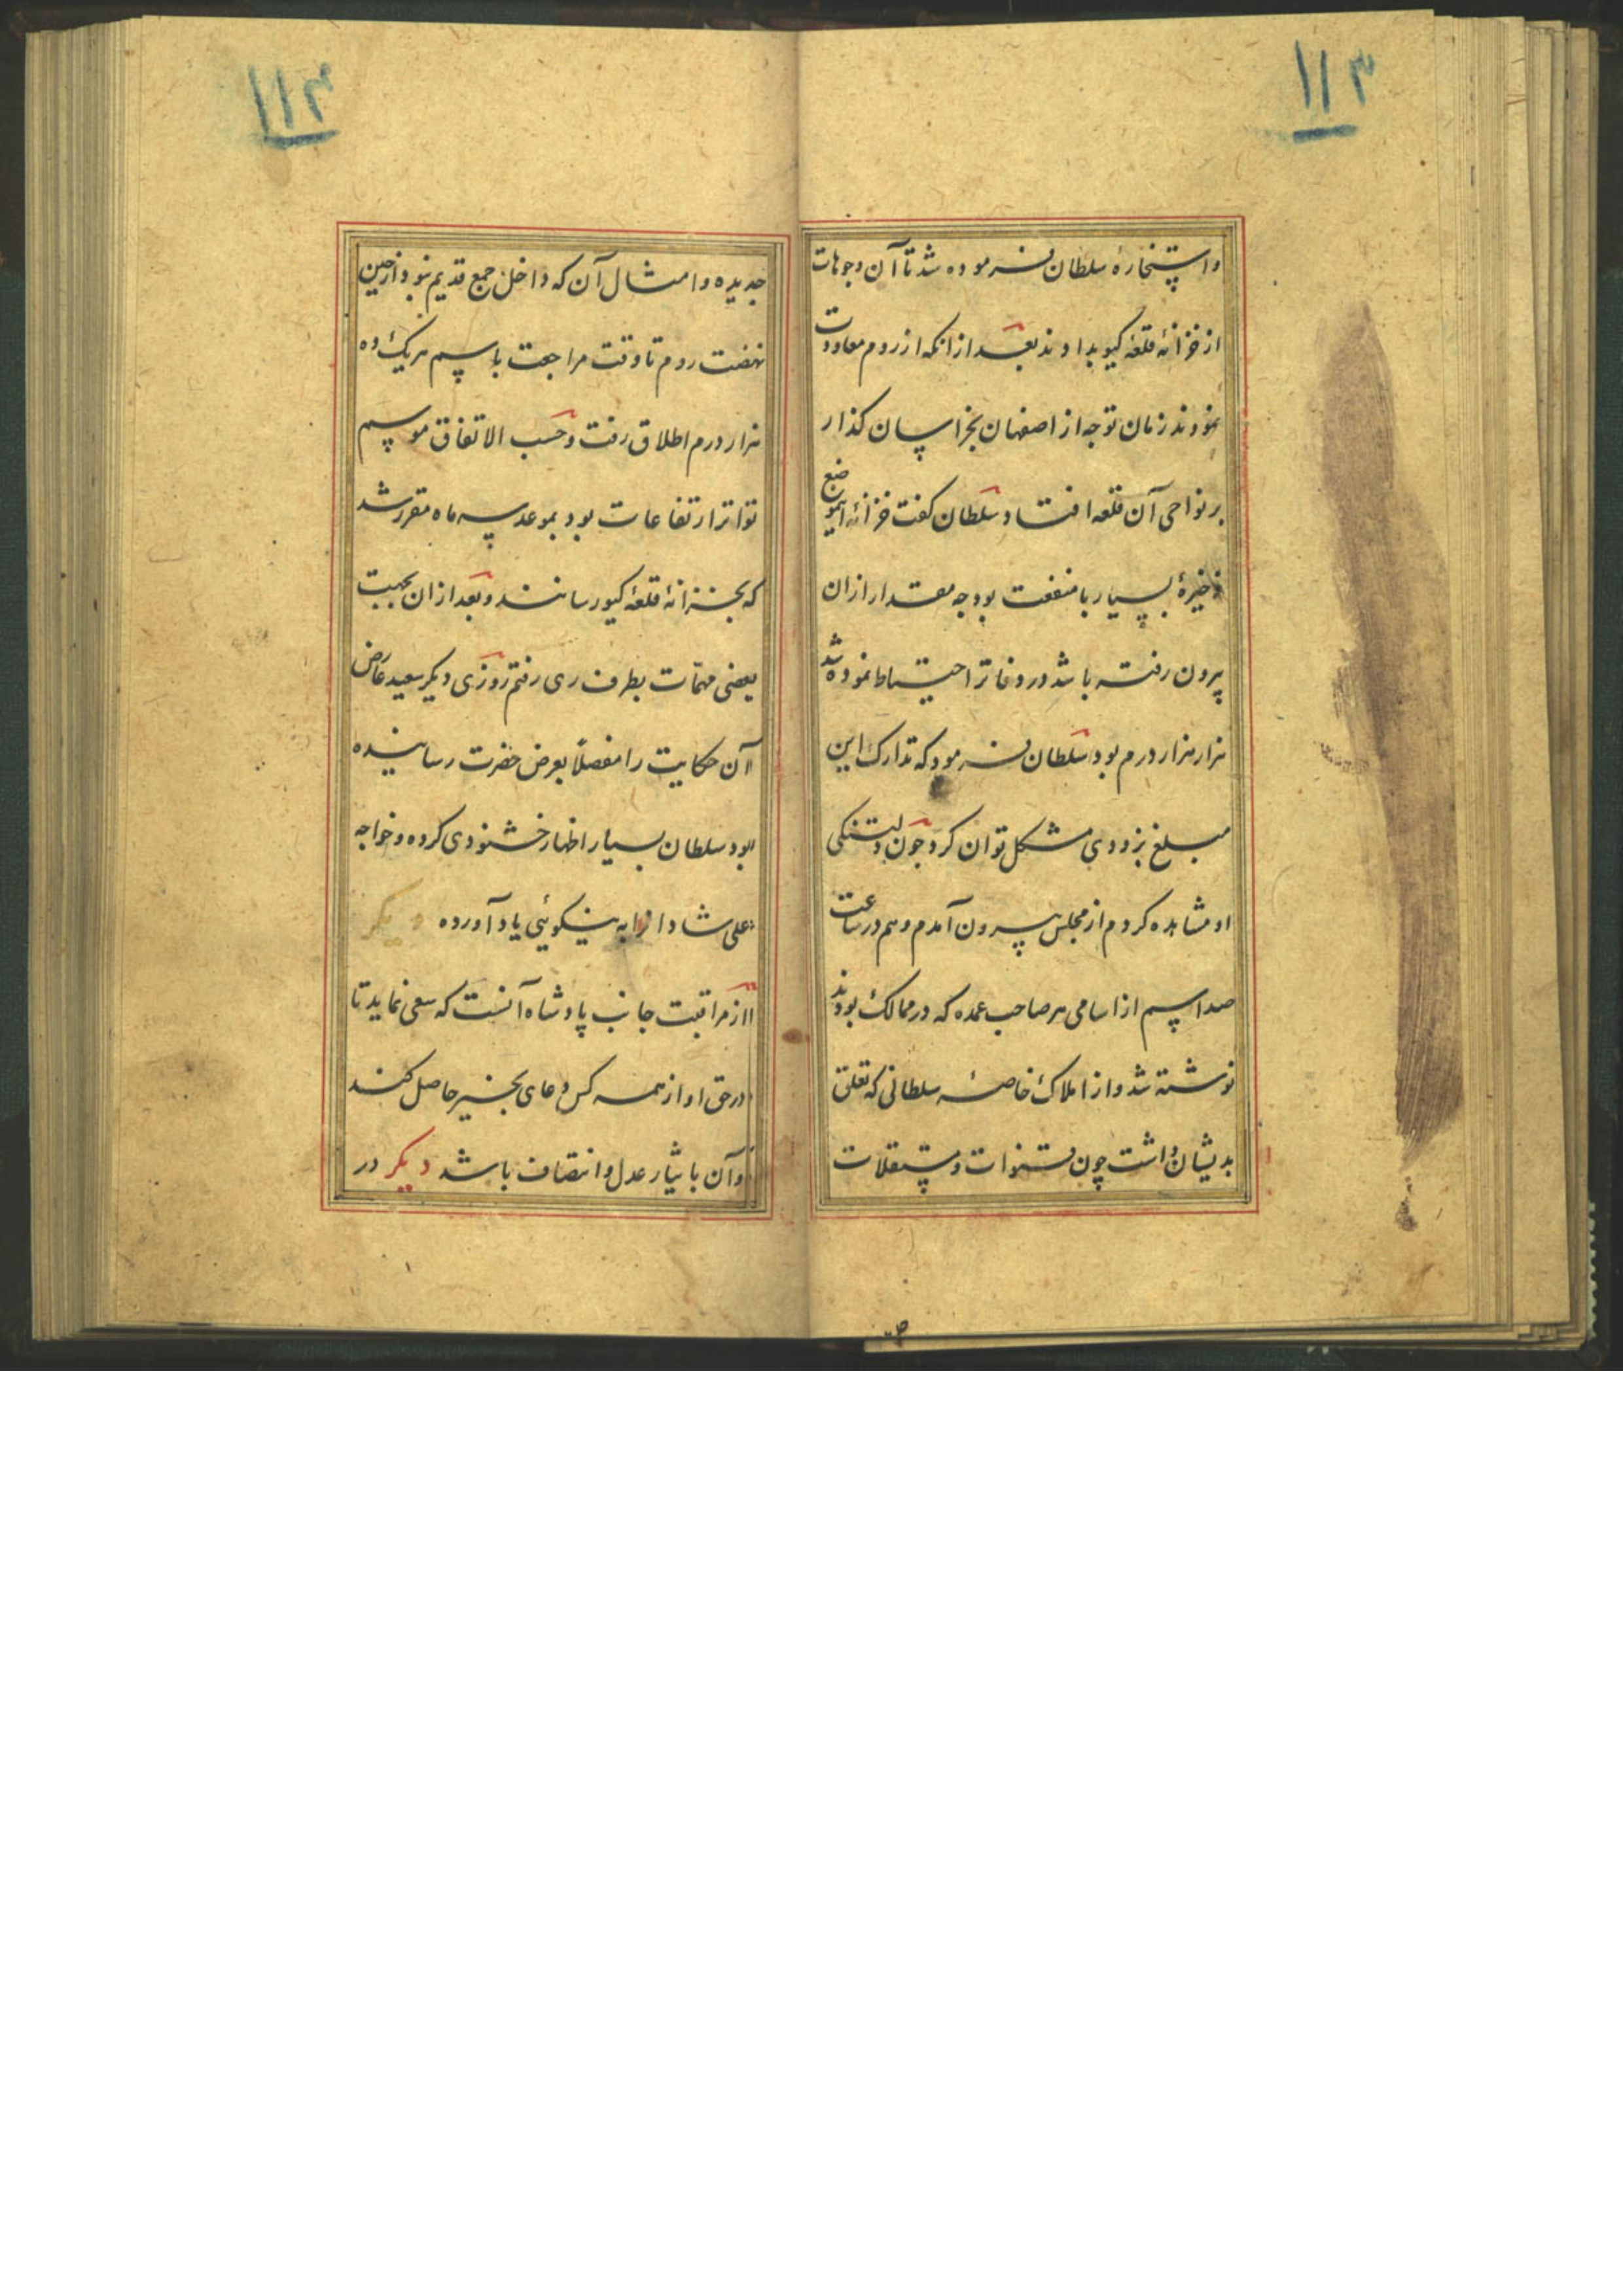 ۱۱۳
واستخارهٔ سلطان فرموده شد تا آن وجوهات
از خزانهٔ قلعهٔ کیو بدادند بعد از انکه از روم معاودت
نمودند زمان توجه از اصفهان بخراسان کذار
بر نواحی آن قلعه افتاد سلطان کفت خزانهٔ این موضع
ذخیرهٔ بسیار با منفعت بود چه مقدار ازان
بیرون رفته باشد در دفاتر احتیاط نموده شد
هزار هزار درم بود سلطان فرمود که تدارک این
مبلغ بزودی مشکل توان کرد چون دلتنکی
او مشاهده کردم از مجلس بیرون آمدم و هم در ساعت
صد اسم از اسامی هر صاحب عمده که در ممالک بودند
نوشته شد و از املاک خاصهٔ سلطانی که تعلق
بدیشان داشت چون و مستقلات
۱۱۴
جدیده و امثال آن که داخل جمع قدیم نبود از حین
نهضت روم تا وقت مراجعت باسم هریک ده
هزار درم اطلاق رفت و حسب الاتفاق موسم
تواتر ارتفاعات بود بموعد سه ماه مقرر شد
که بخزانهٔ قلعهٔ کیو رسانند و بعد ازان بجهت
بعضی مهمات بطرف ری رفتم روزی دیکر سعید عارض
آن حکایت را مفصلاً بعرض حضرت رسانیده
بود سلطان بسیار اظهار خشنودی کرده و خواجه
علی شادان را به نیکوئی یاد آورده دیکر
از مراقبت جانب پادشاه آنست که سعی نماید تا
در حق او از همه کس دعای بخیر حاصل کند
و آن بایثار عدل و انتصاف باشد دیکر در